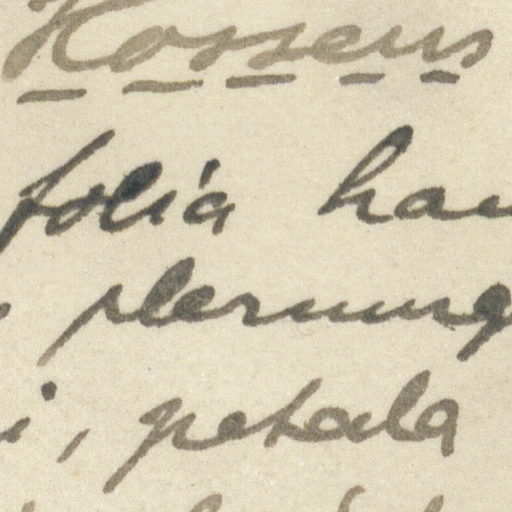 Hosseus
folia hau
plerumq
i, petala